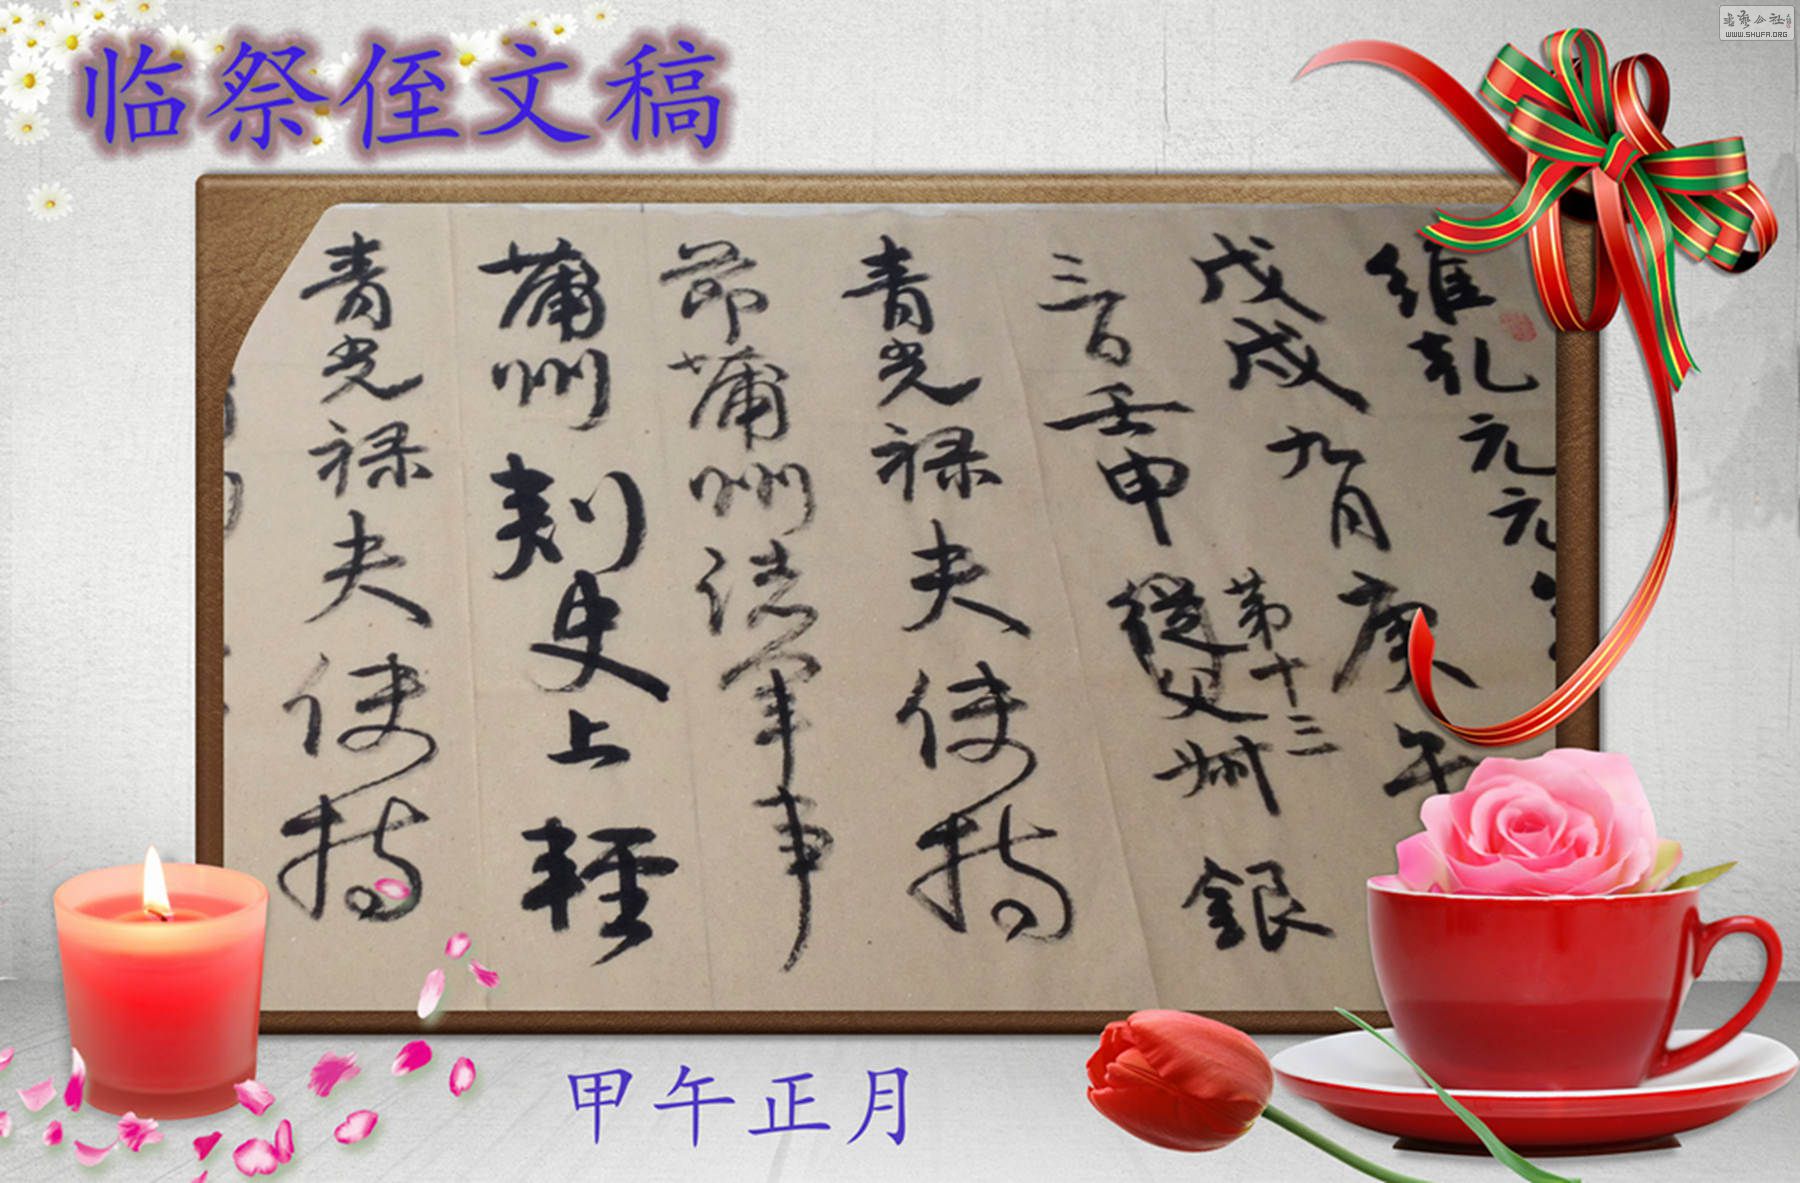 临祭侄文稿
書藝公社
WWW.SHUFA.ORG
維乹元元
戊戌九月庚午
三日壬申
第十三
從父
銀
青光禄夫使持
節蒲州諸軍事
蒲州刺史上輕
青光禄夫使持
甲午正月